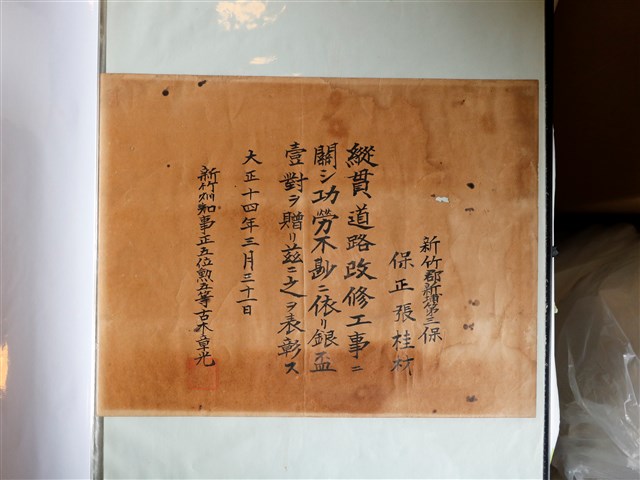 新竹郡新埔第二保
保正張桂材
縱貫道路改修工事ニ
關シ功勞不尠ニ依リ銀盃
壹對ヲ贈リ茲ニ之ヲ表彰ス
大正十四年三月三十一日
新竹州知事正五位勲五等古木章光